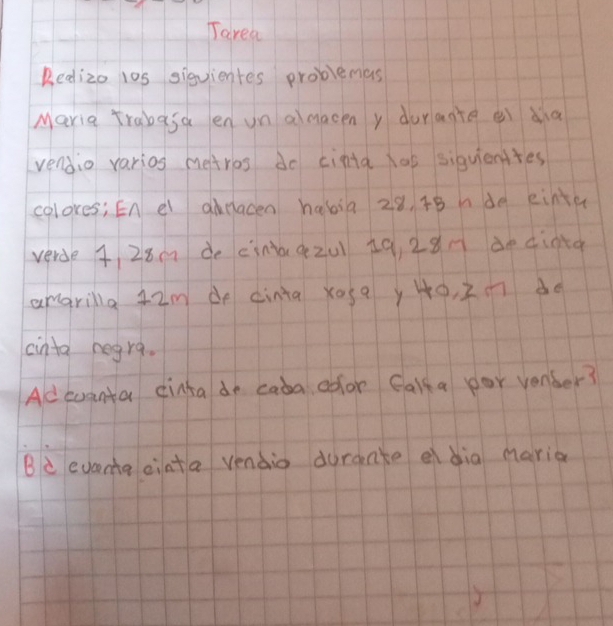 Tarea
Realizo los siguientes problemas
Maria Trabaja en un almacen y durante el dia
vendio varios metros de cinta los siguientes
colores; En el almacen habia 28,75 m de cinta
verde 7,28m de cinta azul 19,28m de cinta
amarilla 12m de cinta rosa y 40,2m de
cinta negra.
A¿cuanta cinta de caba color falta por venber?
B¿cuanta cinta vendio durante el dia maria